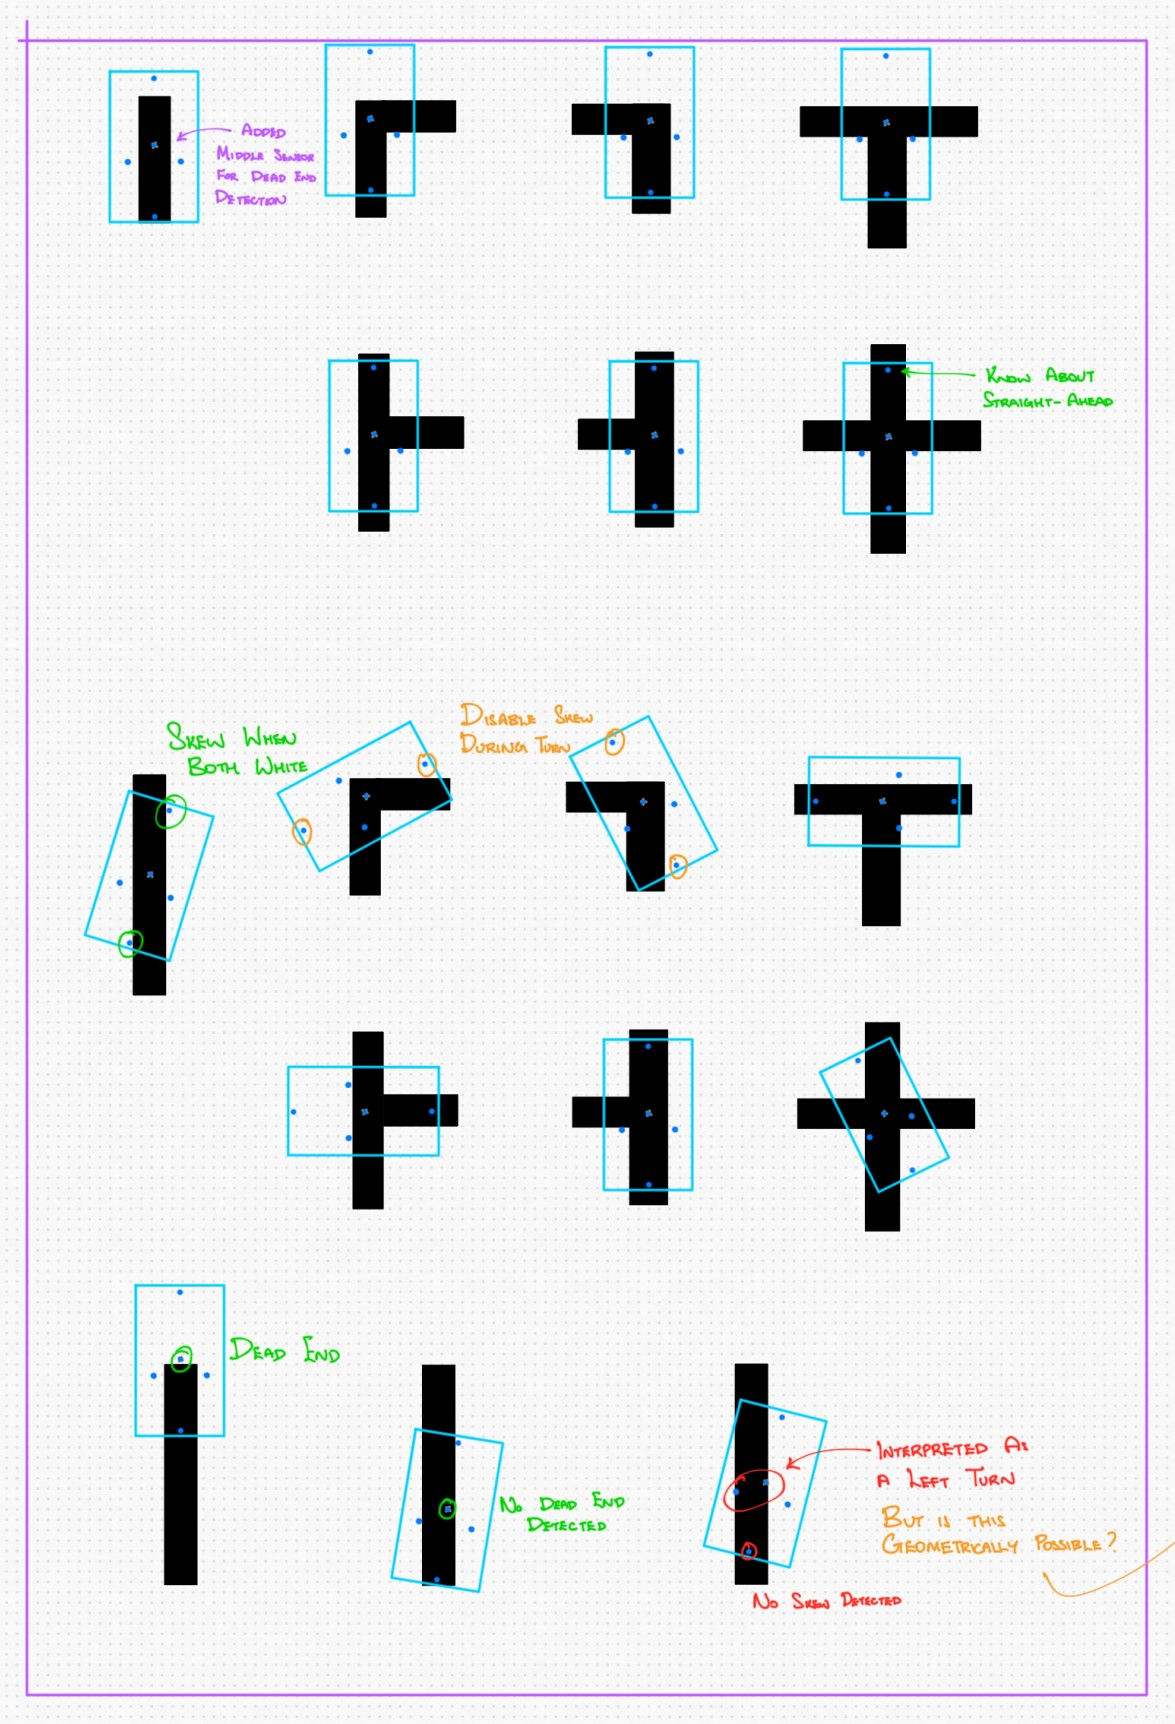 ADDED
MIDDLE SENSOR
FOR DEAD END
DETECTION
KNOW ABOUT
STRAIGHT-AHEAD
SKEW WHEN
BOTH WHITE
DISABLE SKEW
DURING TURN
DEAD END
NO DEAD END
DETECTED
INTERPRETED AS
A LEFT TURN
BUT IS THIS
GEOMETRICALLY POSSIBLE?
NO SKEW DETECTED